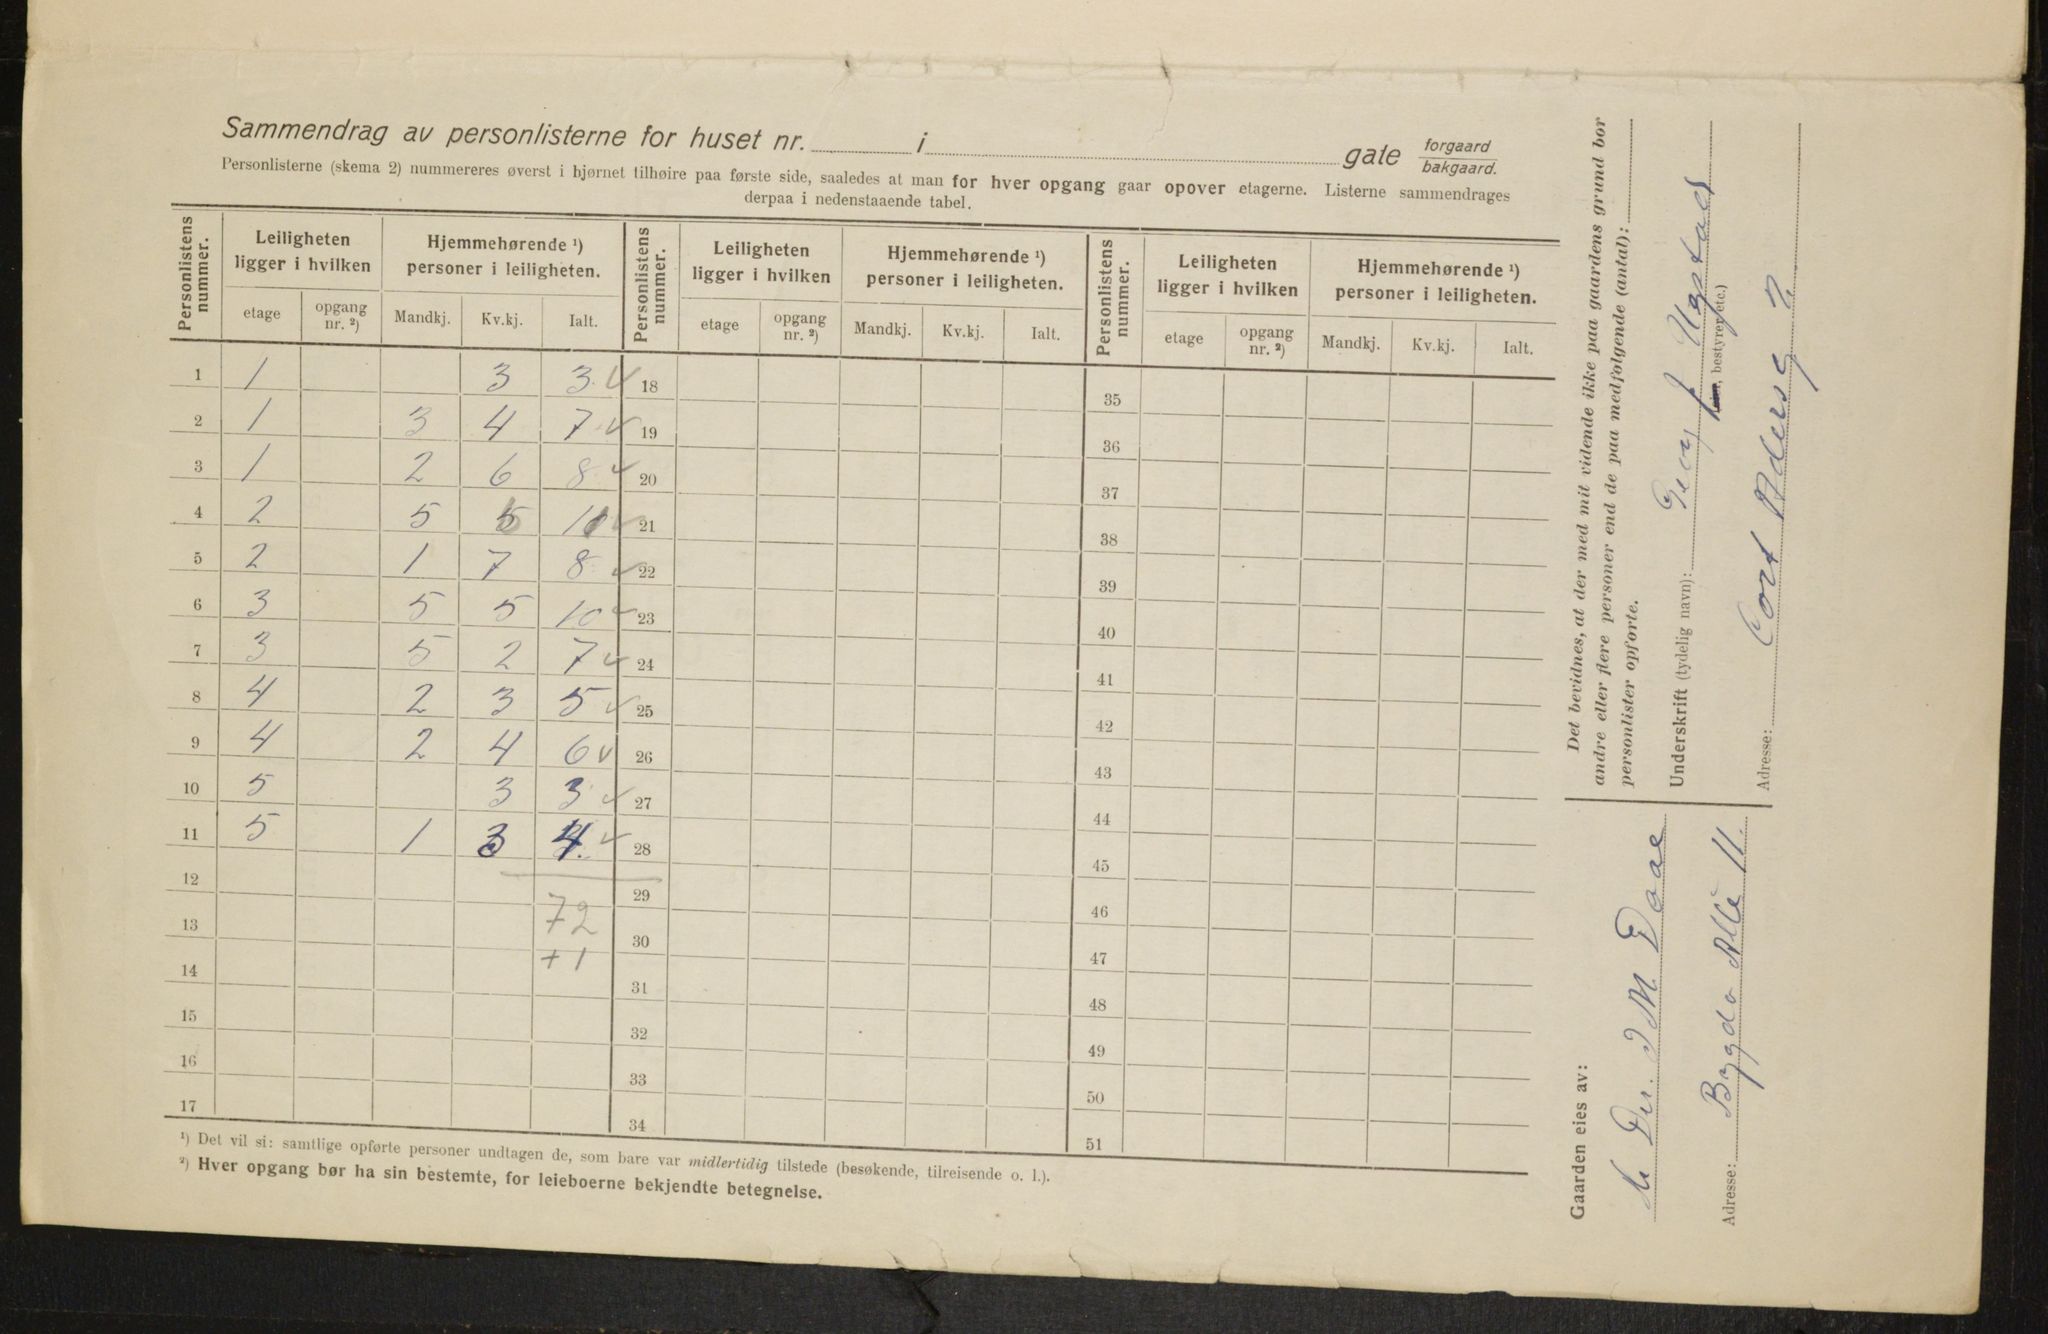 Sammendrag av personlisterne for huset nr. i gate forgaard bakgaard.
Personlisterne (skema 2) nummereres øverst i hjørnet tilhøire paa første side, saaledes at man for hver opgang gaar opover etagerne. Listerne sammendrages
derpaa i nedenstaaende tabel.
Personlistens nummer. Leiligheten ligger i hvilken Hjemmehørende ¹) personer i leiligheten. Personlistens nummer. Leiligheten ligger i hvilken Hjemmehørende ¹) personer i leiligheten. Personlistens nummer. Leiligheten ligger i hvilken Hjemmehørende ¹) personer i leiligheten.
etage opgang nr. ²) Mandkj. Kv.kj. Ialt. etage opgang nr. ²) Mandkj. Kv.kj. Ialt. etage opgang nr. ²) Mandkj. Kv.kj. Ialt.
1 1 3 3 ✓ 18 35
2 1 3 4 7 ✓ 19 36
3 1 2 6 8 ✓ 20 37
4 2 5 ✓ 21 38
5 2 1 7 8 ✓ 22 39
6 3 5 5 10 ✓ 23 40
7 3 5 2 7 ✓ 24 41
8 4 2 3 5 ✓ 25 42
9 4 2 4 6 ✓ 26 43
10 5 3 3 ✓ 27 44
11 5 1 3 4. ✓ 28 45
12 29 46
13 72 30 47
14 +1 31 48
15 32 49
16 33 50
17 34 51
¹) Det vil si: samtlige opførte personer undtagen de, som bare var midlertidig tilstede (besøkende, tilreisende o. l.).
²) Hver opgang bør ha sin bestemte, for leieboerne bekjendte betegnelse.
Det bevidnes, at der med mit vidende ikke paa gaardens grund bor
andre eller flere personer end de paa medfølgende (antal):
personlister opførte.
Underskrift (tydelig navn):
, bestyrer, etc.)
Adresse: Cort Adersg 2
Gaarden eies av:
Dr. J M Daae
Adresse: Bygdø Allé 11.